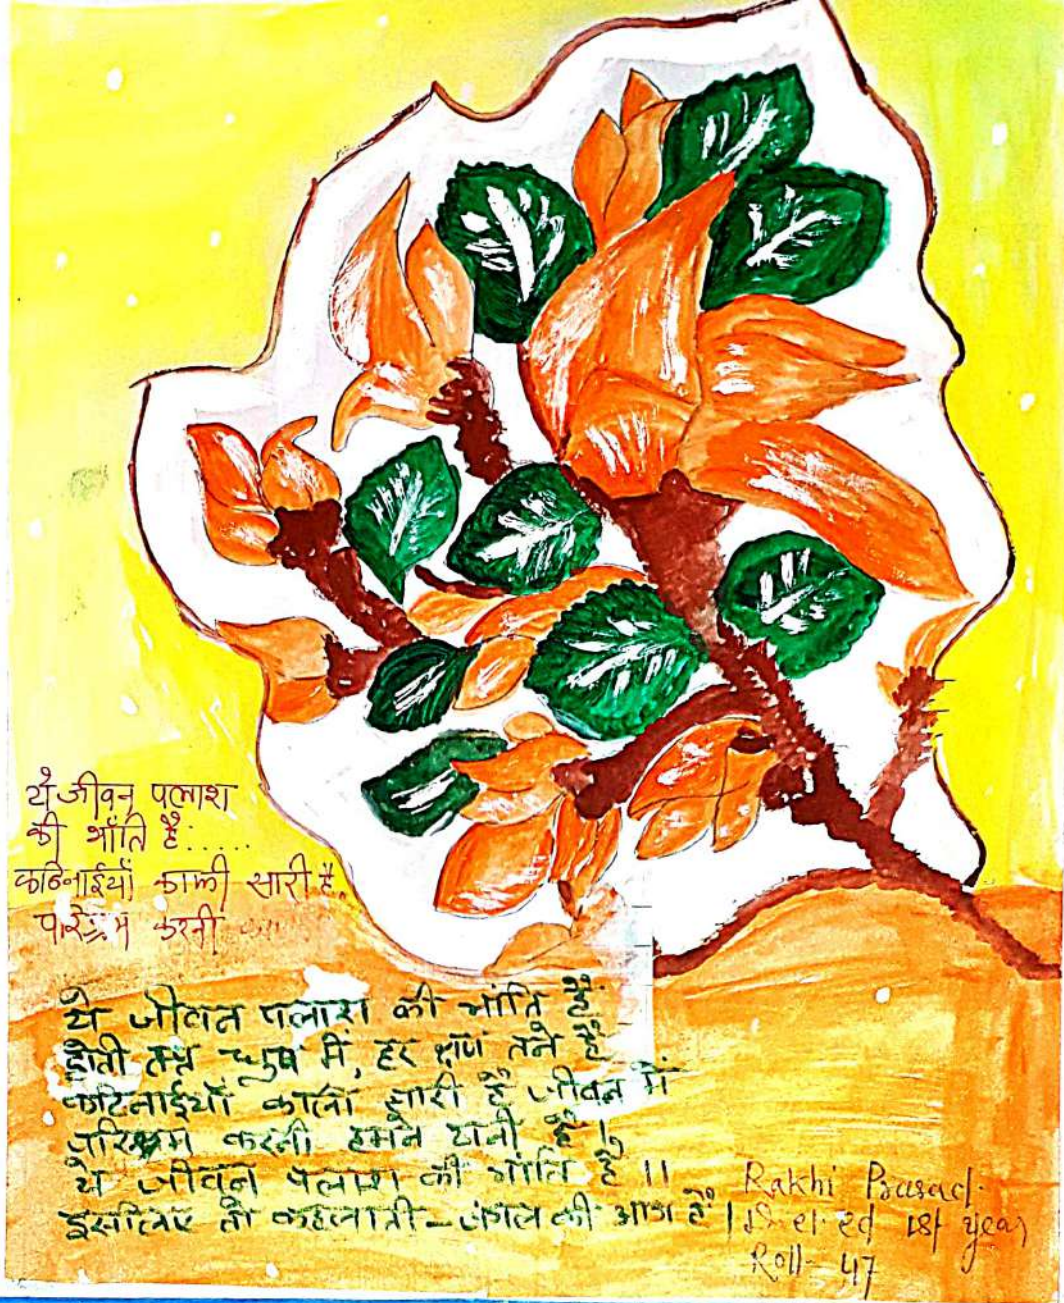 ये जीवन पलाश
की भाँति है.....
कठिनाईयाँ काफी सारी है,
परिश्रम करनी
ये जीवन पलाश की भांति है
होती तप्त धुप में, हर क्षण तने है
कठिनाईयाँ काफी सारी है जीवन में
परिश्रम करनी हमने ठानी है।
ये जीवन पलाश की भांति है ।।
इसलिए तो कहलाती - जंगल की आग है।
Rakhi Prasad
D.el.ed 1st year
Roll- 47